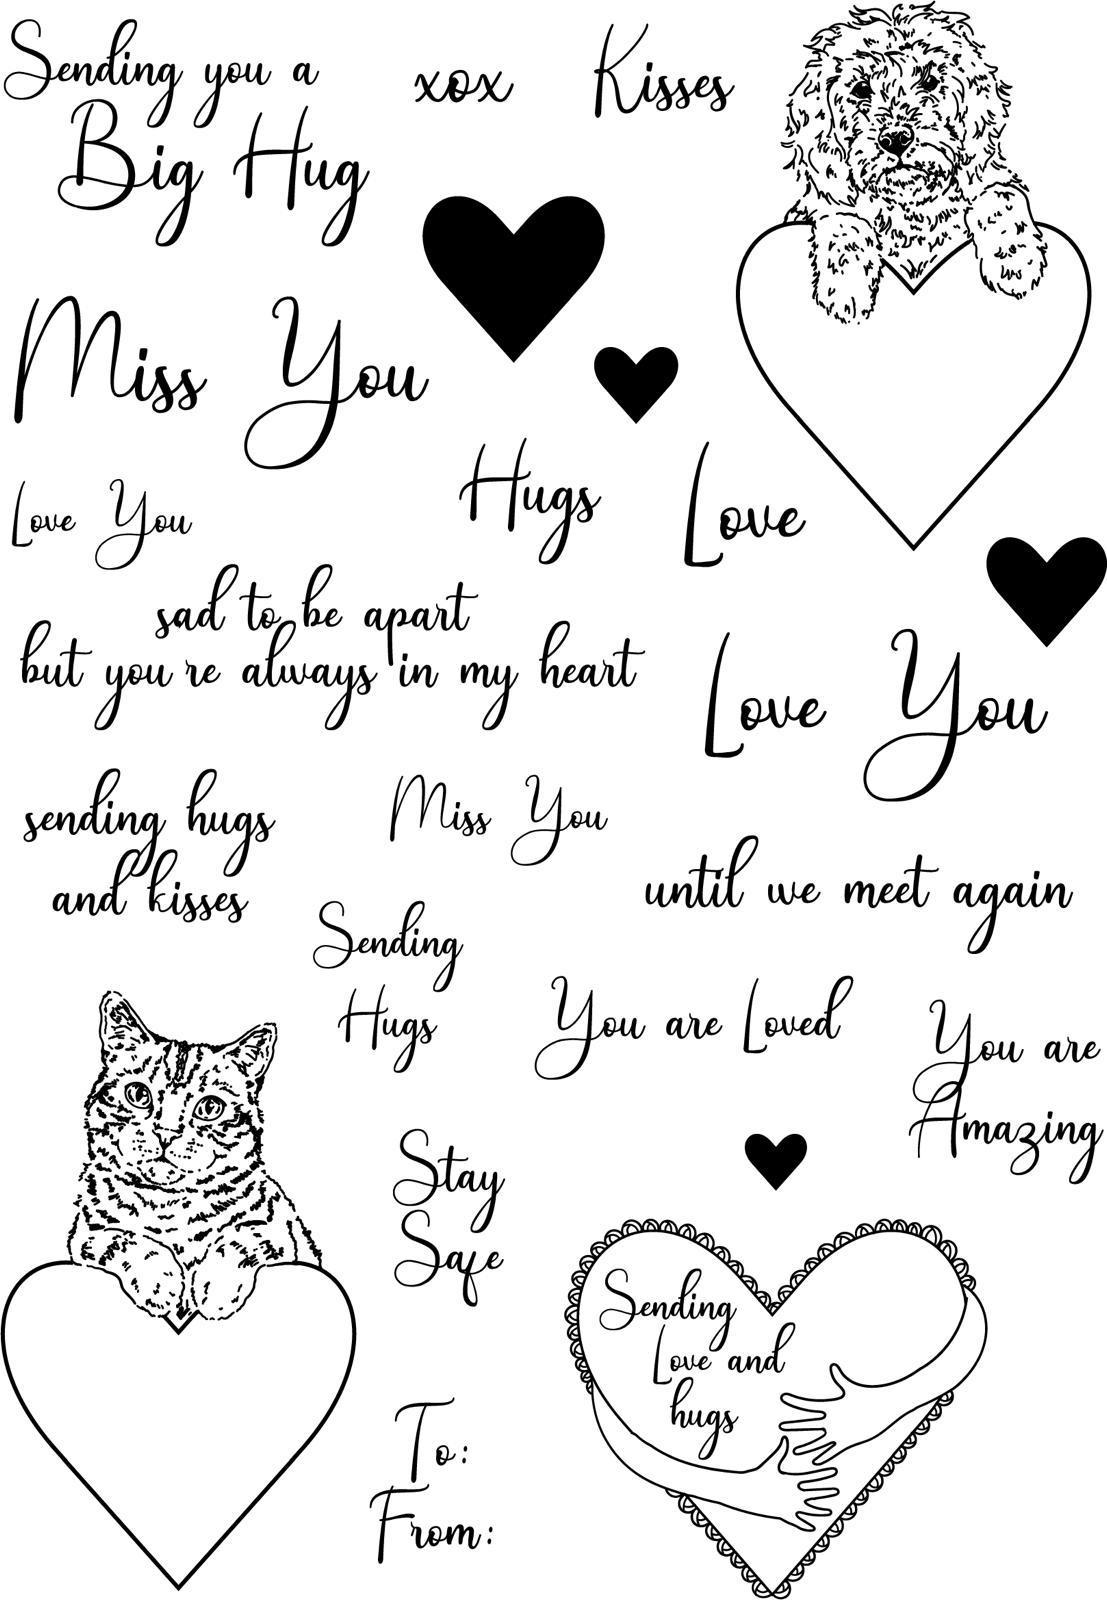 Sending you a
Big Hug
xox
Kisses
Miss You
Love You
Hugs
Love
sad to be apart
but you're always in my heart
Love You
sending hugs
and kisses
Miss You
until we meet again
Sending
Hugs
You are Loved
You are
Amazing
Stay
Safe
Sending
Love and
hugs
To:
From: